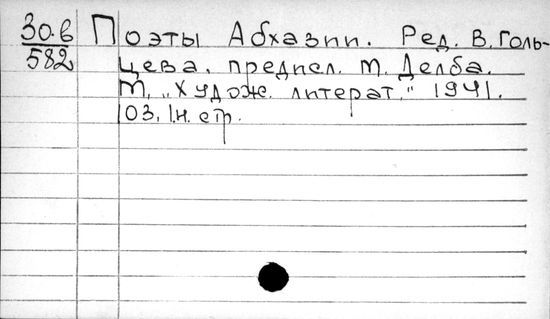 30.в
582
Поэты Абхазии. Ред. В. Голь-
цева. предисл. М. Делба.
М. „Худож. литерат." 1941.
103, 1н. стр.